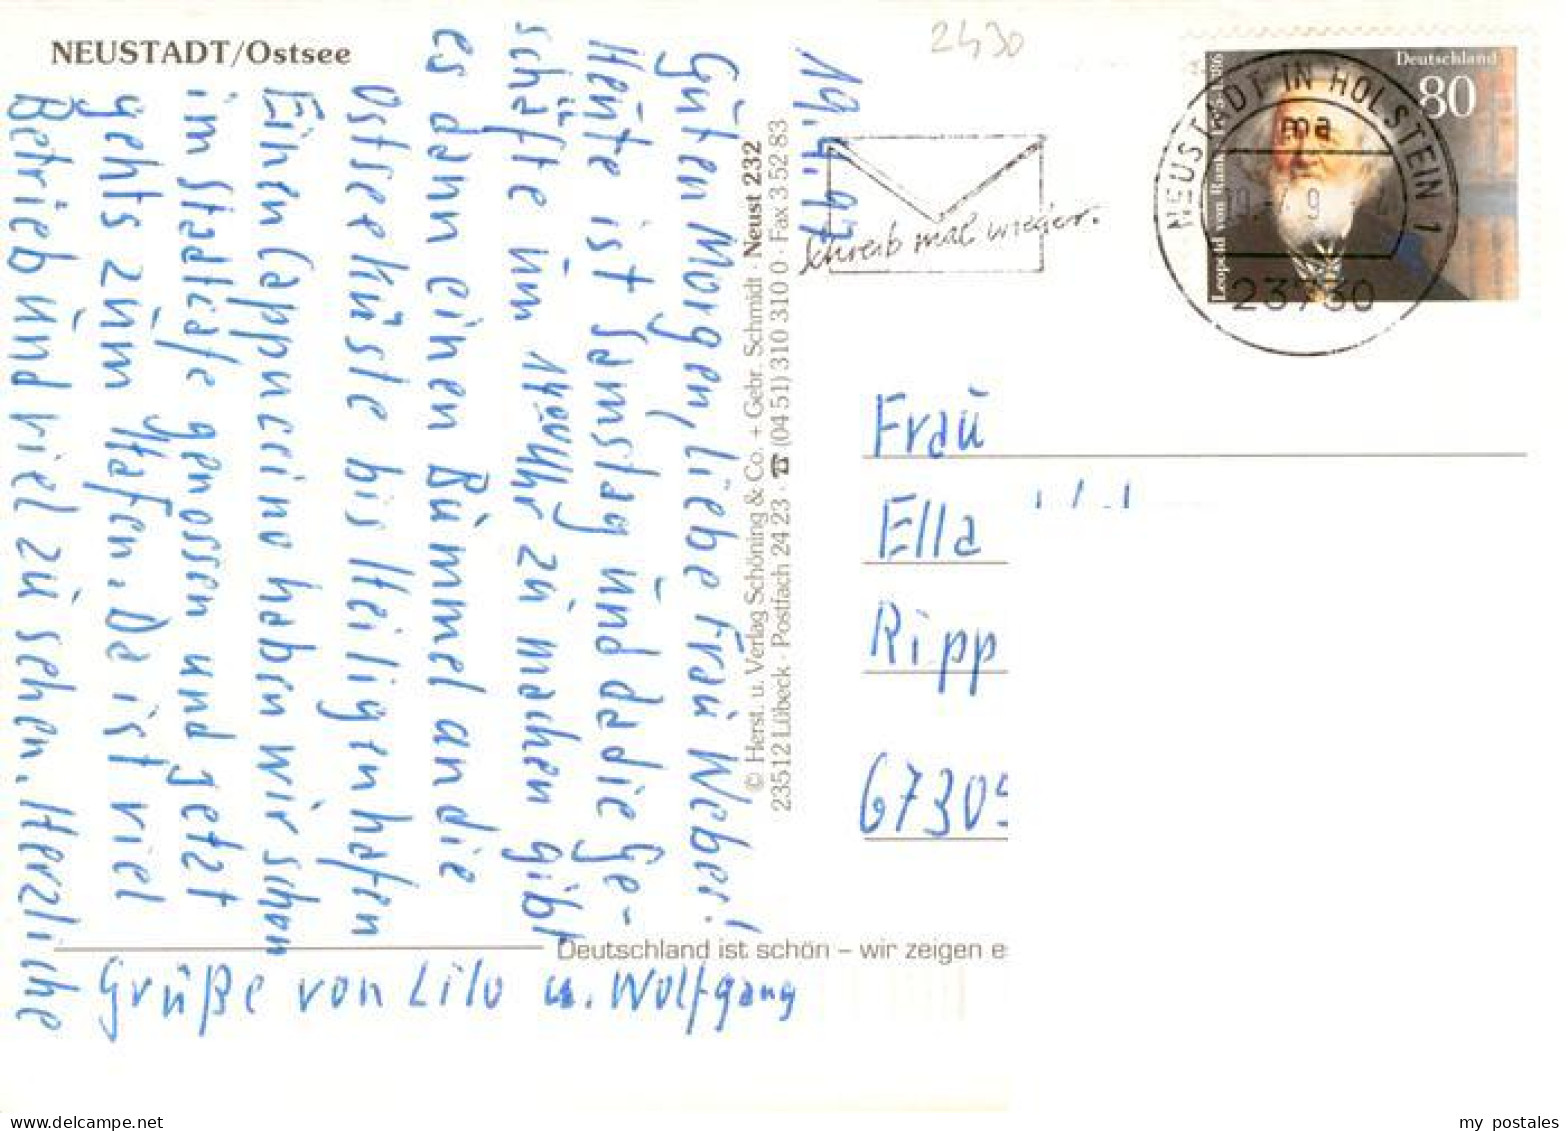 NEUSTADT/Ostsee
2430
19.4.97
Guten Morgen, liebe Frau Weber!
Heute ist Samstag und da die Ge-
schäfte um 14 00 Uhr zu machen gibt
es dann einen Bummel an die
Ostseeküste bis Heiligenhafen
Einen Cappuccino haben wir schon
im Stadtcafe genossen und jetzt
gehts zum Hafen. Da ist viel
Betrieb und viel zu sehen. Herzliche
Grüße von Lilo u. Wolfgang
© Herst. u. Verlag Schöning & Co. + Gebr. Schmidt · Neust 232
23512 Lübeck · Postfach 24 23 · ☎ (04 51) 310 310 0 · Fax 3 52 83
Schreib mal wieder.
Deutschland
80
Leopold von Ranke
NEUSTADT IN HOLSTEIN 1
ma
23730
Frau
Ella
Ripp
6730
Deutschland ist schön – wir zeigen e
my postales